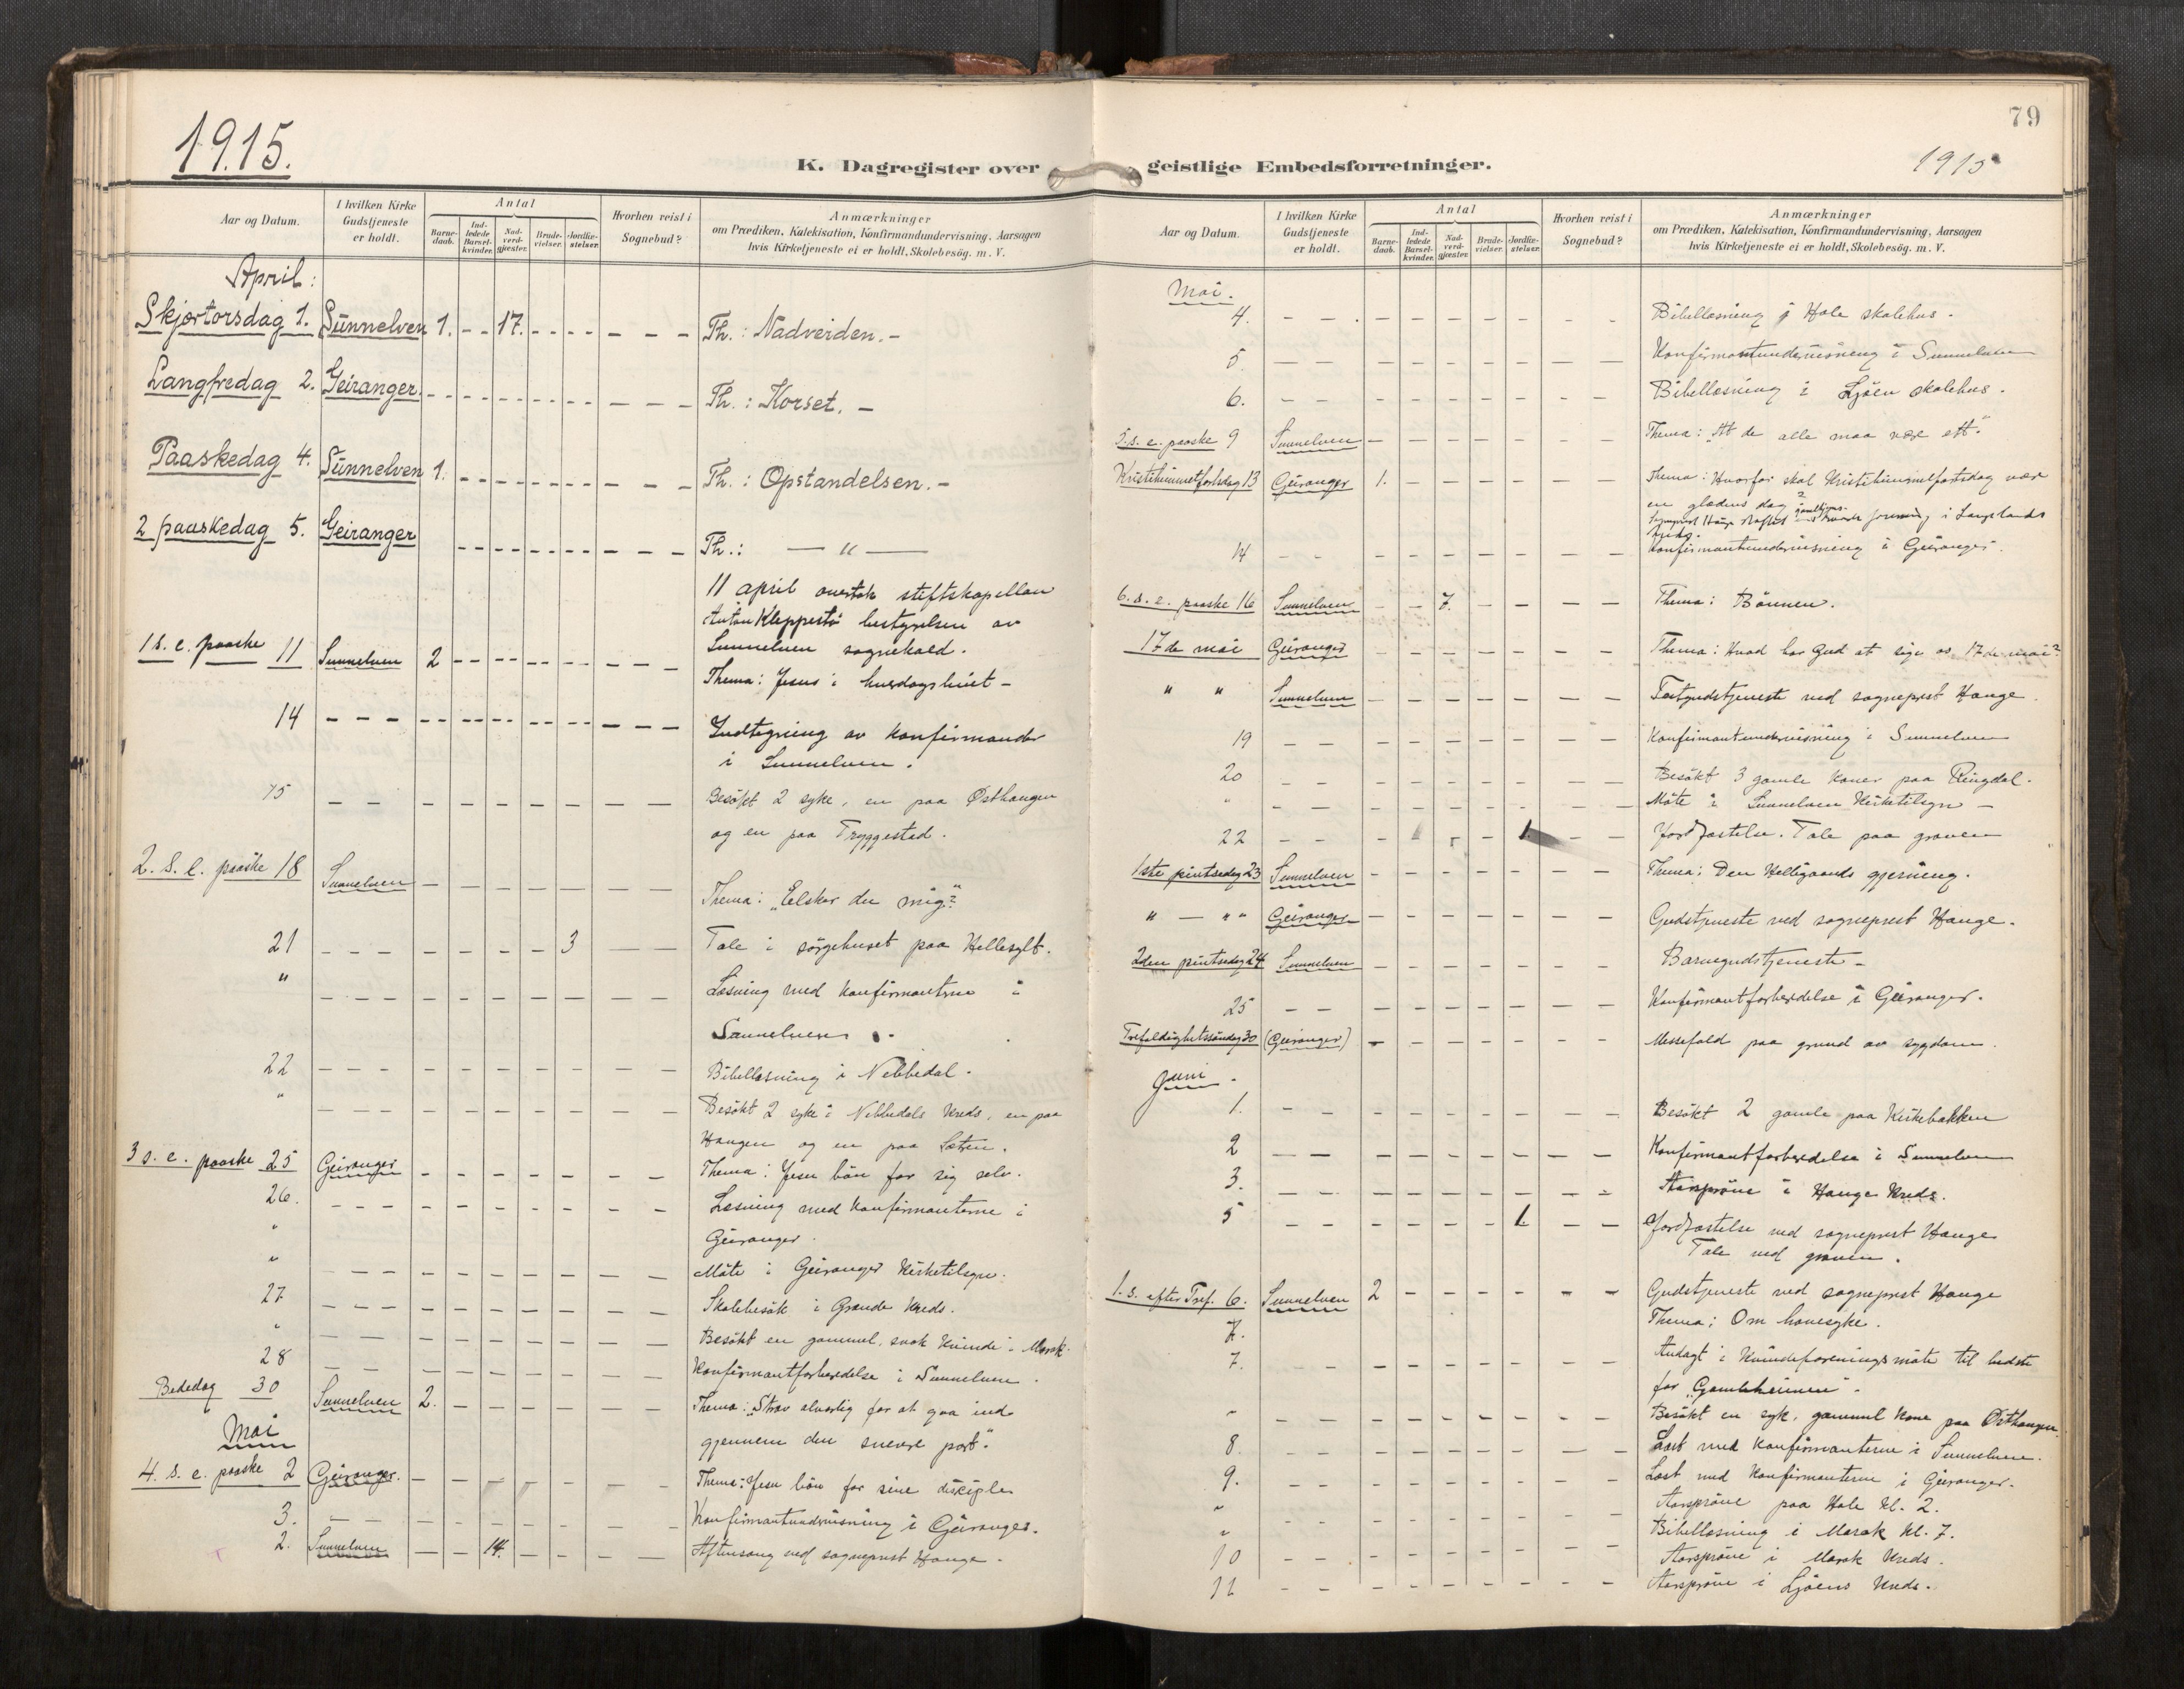 1915.
K. Dagregister over
Aar og Datum.
I hvilken Kirke Gudstjeneste er holdt.
Antal
Barne-daab.
Ind-ledede Barsel-kvinder.
Nad-verd-gjæster.
Brude-vielser.
Jordfæ-stelser.
Hvorhen reist i Sognebud?
Anmærkninger
om Prædiken, Katekisation, Konfirmandundervisning, Aarsagen
hvis Kirketjeneste ei er holdt, Skolebesøg. m. V.
April:
Skjærtorsdag 1. Sunnelven 1. - - 17. - - - - - - - Th.: Nadverden. -
Langfredag 2. Geiranger. - - - - - - - - - - Th.: Korset. -
Paaskedag 4. Sunnelven 1. - - - - - - - - - - Th.: Opstandelsen. -
2 paaskedag 5. Geiranger - - - - - - - - - - - Th.: — " —
11 april overtok stiftskapellan
Anton Kleppestø bestyrelsen av
Sunnelven sognekald.
1 s. e. paaske 11 Sunnelven 2 - - - - - - - - - - Thema: Jesus i hverdagslivet -
14 - - - - - - - - - - - - - Indtegning av konfirmander
i Sunnelven.
15 - - - - - - - - - - Besøkt 2 syke, en paa Østhaugen
og en paa Tryggestad.
2. s. e. paaske 18 Sunnelven - - - - - - - - Thema: "Elsker du mig?"
21 - - - - - - - 3 - - Tale i sørgehuset paa Hellesylt.
" - - - - - - - - - - Læsning med konfirmanterne i
Sunnelven.
22 - - - - - - - - - - Bibellæsning i Nebbedal.
" - - - - - - - - - - Besøkt 2 syke i Nebbedals kreds, en paa
Haugen og en paa Sætren.
3 s. e. paaske 25 Geiranger - - - - - - - Thema: Jesu bøn for sig selv.
26. - - - - - - - - - - Læsning med konfirmanterne i
" Geiranger.
" - - - - - - - - - - Møte i Geiranger kirketilsyn.
27 - - - - - - - - - - Skolebesøk i Grande kreds.
" - - - - - - - - - - Besøkt en gammel, svak kvinde i Marak.
28 - - - - - - - - - Konfirmantforberedelse i Sunnelven.
Bededag 30 Sunnelven 2. - - - - - - Thema: "Stræv alvorlig for at gaa ind
gjennem den snevre port".
Mai
4. s. e. paaske 2 Geiranger. - - - - - - Thema: Jesu bøn for sine disciple
3. - - - - - - - - - Konfirmantundervisning i Geiranger.
2. Sunnelven - - 14. - - - - Aftensang ved sogneprest Hauge.
79
geistlige Embedsforretninger.
1915
Aar og Datum.
I hvilken Kirke Gudstjeneste er holdt.
Antal
Barne-daab.
Ind-ledede Barsel-kvinder.
Nad-verd-gjæster.
Brude-vielser.
Jordfæ-stelser.
Hvorhen reist i Sognebud?
Anmærkninger
om Prædiken, Katekisation, Konfirmandundervisning, Aarsagen
hvis Kirketjeneste ei er holdt, Skolebesøg. m. V.
Mai.
4. - - - - - - - - - Bibellæsning i Hole skolehus.
5. - - - - - - - - - Konfirmantundervisning i Sunnelven
6. - - - - - - - - - Bibellæsning i Ljøen skolehus.
5. s. e. paaske 9 Sunnelven - - - - - - - Thema: "At de alle maa være ett."
Kristihimmelfartsdag 13 Geiranger 1. - - - - - - Thema: Hvorfor skal Kristihimmelfartsdag være
en glædens dag?
14 - - - - - - - - - Konfirmantundervisning i Geiranger.
6. s. e. paaske 16 Sunnelven - - 7. - - - - Thema: Bønnen.
17de mai Geiranger - - - - - - - Thema: Hvad har Gud at sige os 17de mai?
" " Sunnelven - - - - - - - Festgudstjeneste ved sogneprest Hauge.
19 - - - - - - - - - Konfirmantundervisning i Sunnelven
20 - - - - - - - - - Besøkt 3 gamle koner paa Ringdal.
" - - - - - - - - - Møte i Sunnelven kirketilsyn -
22 - - - - - 1. - - Jordfæstelse. Tale paa graven
1ste pintsedag 23 Sunnelven - - - - - - - Thema: Den Helligaands gjerning.
" — " " Geiranger - - - - - - - Gudstjeneste ved sogneprest Hauge.
2den pintsedag 24 Sunnelven - - - - - - - Barnegudstjeneste -
25 - - - - - - - - - Konfirmantforberedelse i Geiranger.
Trefoldighetssøndag 30 (Geiranger) - - - - - - - Messefald paa grund av sygdom.
Juni.
1. - - - - - - - - - Besøkt 2 gamle paa Kirkebakken
2 - - - - - - - - - Konfirmantforberedelse i Sunnelven
3. - - - - - - - - - Aarsprøve i Hauge kreds.
5 - - - - - - 1. - - Jordfæstelse ved sogneprest Hauge
Tale ved graven.
1. s. efter Tref. 6. Sunnelven 2 - - - - - - Gudstjeneste ved sogneprest Hauge
7. Thema: Om hovesyke.
7. - - - - - - - - - Andagt i kvindeforeningsmøte til bedste
for "Gamleheimen".
" - - - - - - - - - Besøkt en syk, gammel kone paa Østhaugen.
8. - - - - - - - - - Læst med konfirmanterne i Sunnelven.
9. - - - - - - - - - Læst med konfirmanterne i Geiranger.
" Aarsprøve paa Hole kl. 2.
" Bibellæsning i Marak kl. 7.
10 - - - - - - - - - Aarsprøve i Marak kreds.
11 - - - - - - - - - Aarsprøve i Ljøens kreds.